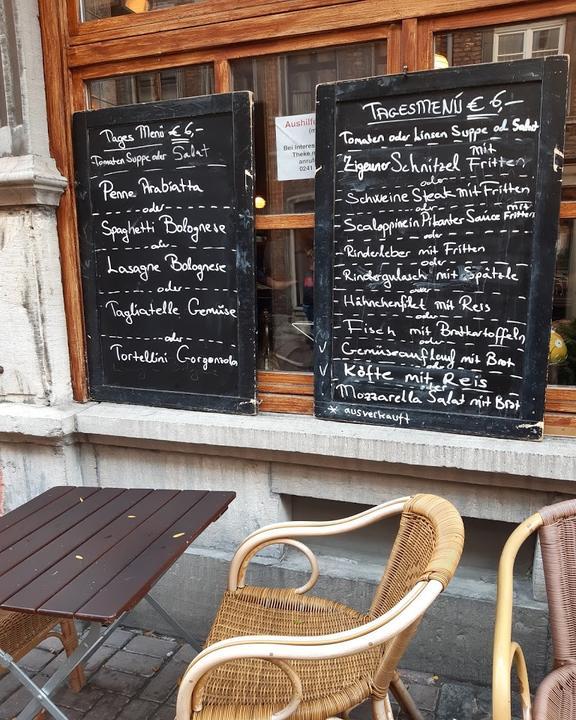 Tages Menü € 6,-
Tomaten Suppe oder Salat
Penne Arabiatta
oder
Spaghetti Bolognese
oder
Lasagne Bolognese
oder
Tagliatelle Gemüse
oder
Tortellini Gorgonzola
Aushilfe
Bei Interes
Theke
anru
0241
TAGESMENÜ € 6,-
Tomaten oder Linsen Suppe od. Salat
Zigeuner Schnitzel mit Fritten
oder
Schweine Steak mit Fritten
oder
Scaloppine in Pikanter Sauce mit Fritten
oder
Rinderleber mit Fritten
oder
Rindergulasch mit Spätzle
oder
Hähnchenfilet mit Reis
oder
Fisch mit Bratkartoffeln
oder
V Gemüseauflauf mit Brot
oder
V Köfte mit Reis
oder
Mozzarella Salat mit Brot
* ausverkauft